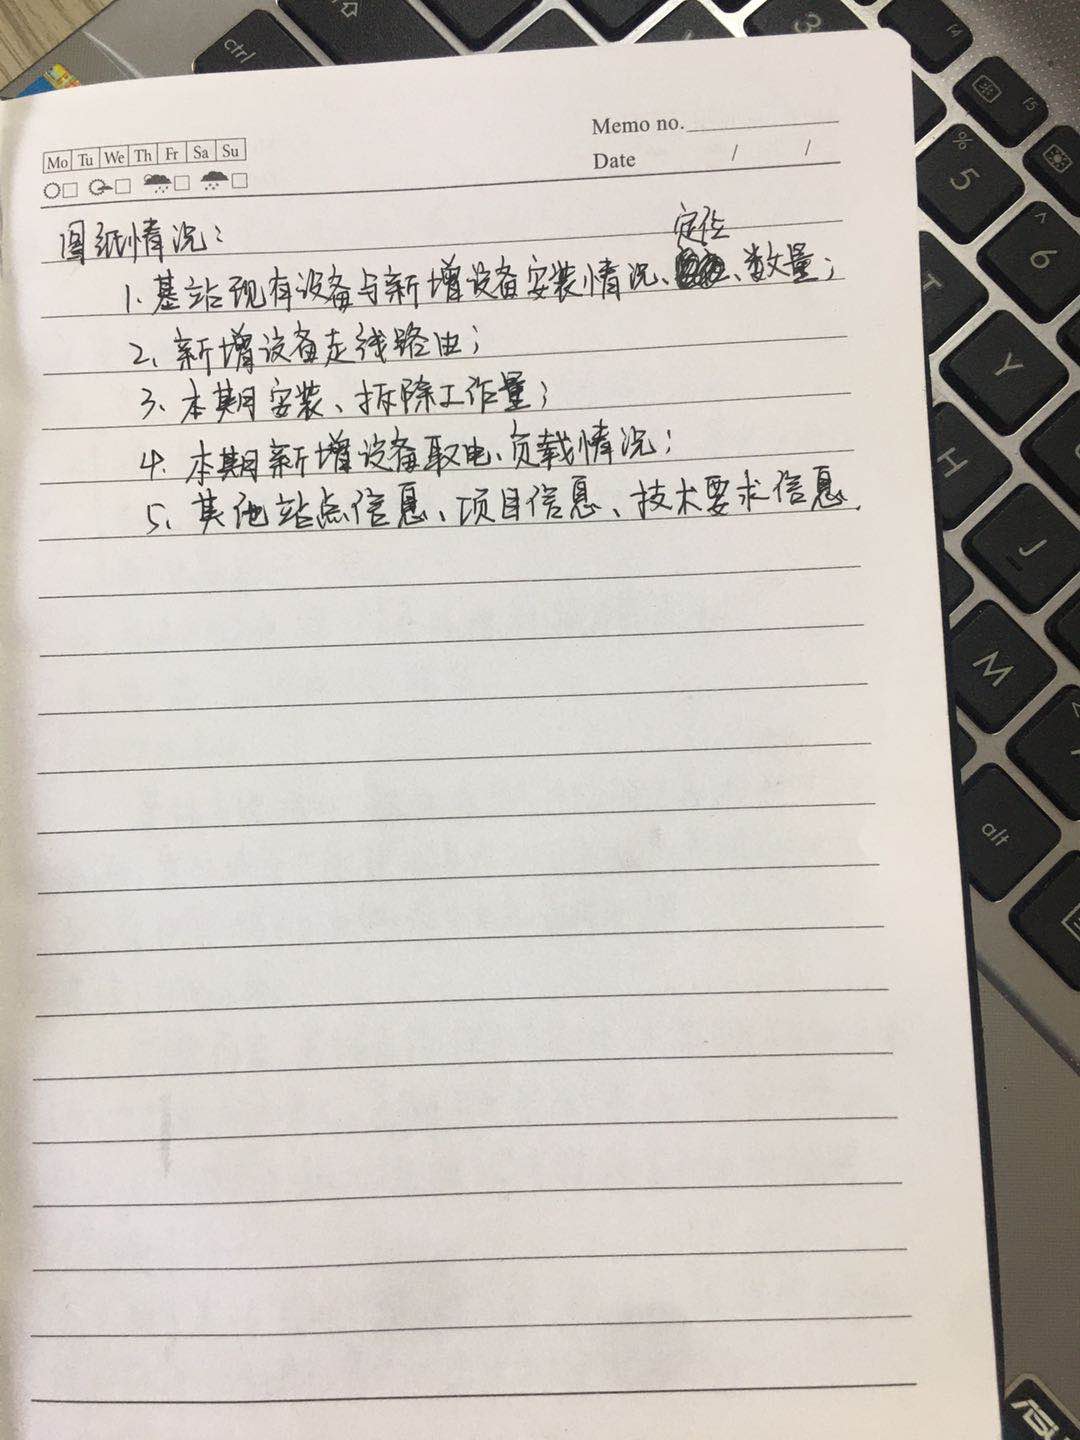 Mo Tu We Th Fr Sa Su
Memo no.
Date / /
图纸情况：
定位
1、基站现有设备与新增设备安装情况、、数量；
2、新增设备走线路由；
3、本期安装、拆除工作量；
4、本期新增设备取电、负载情况；
5、其他站点信息、项目信息、技术要求信息.
ctrl
3
f4
f5
%
5
^
6
T
Y
H
J
M
alt
ASUS